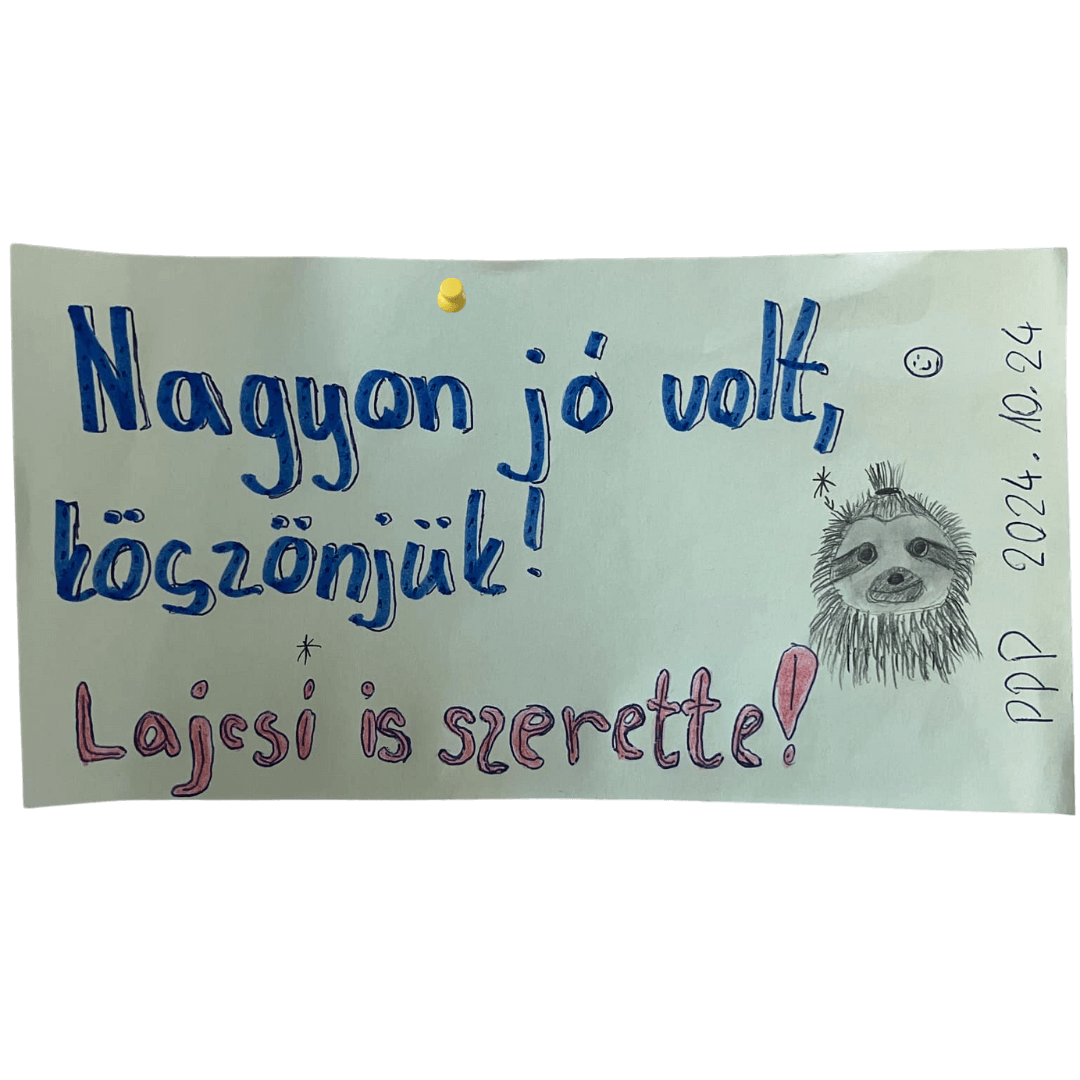 Nagyon jó volt,
köszönjük!
*
Lajcsi is szerette!
*
PPP 2024.10.24